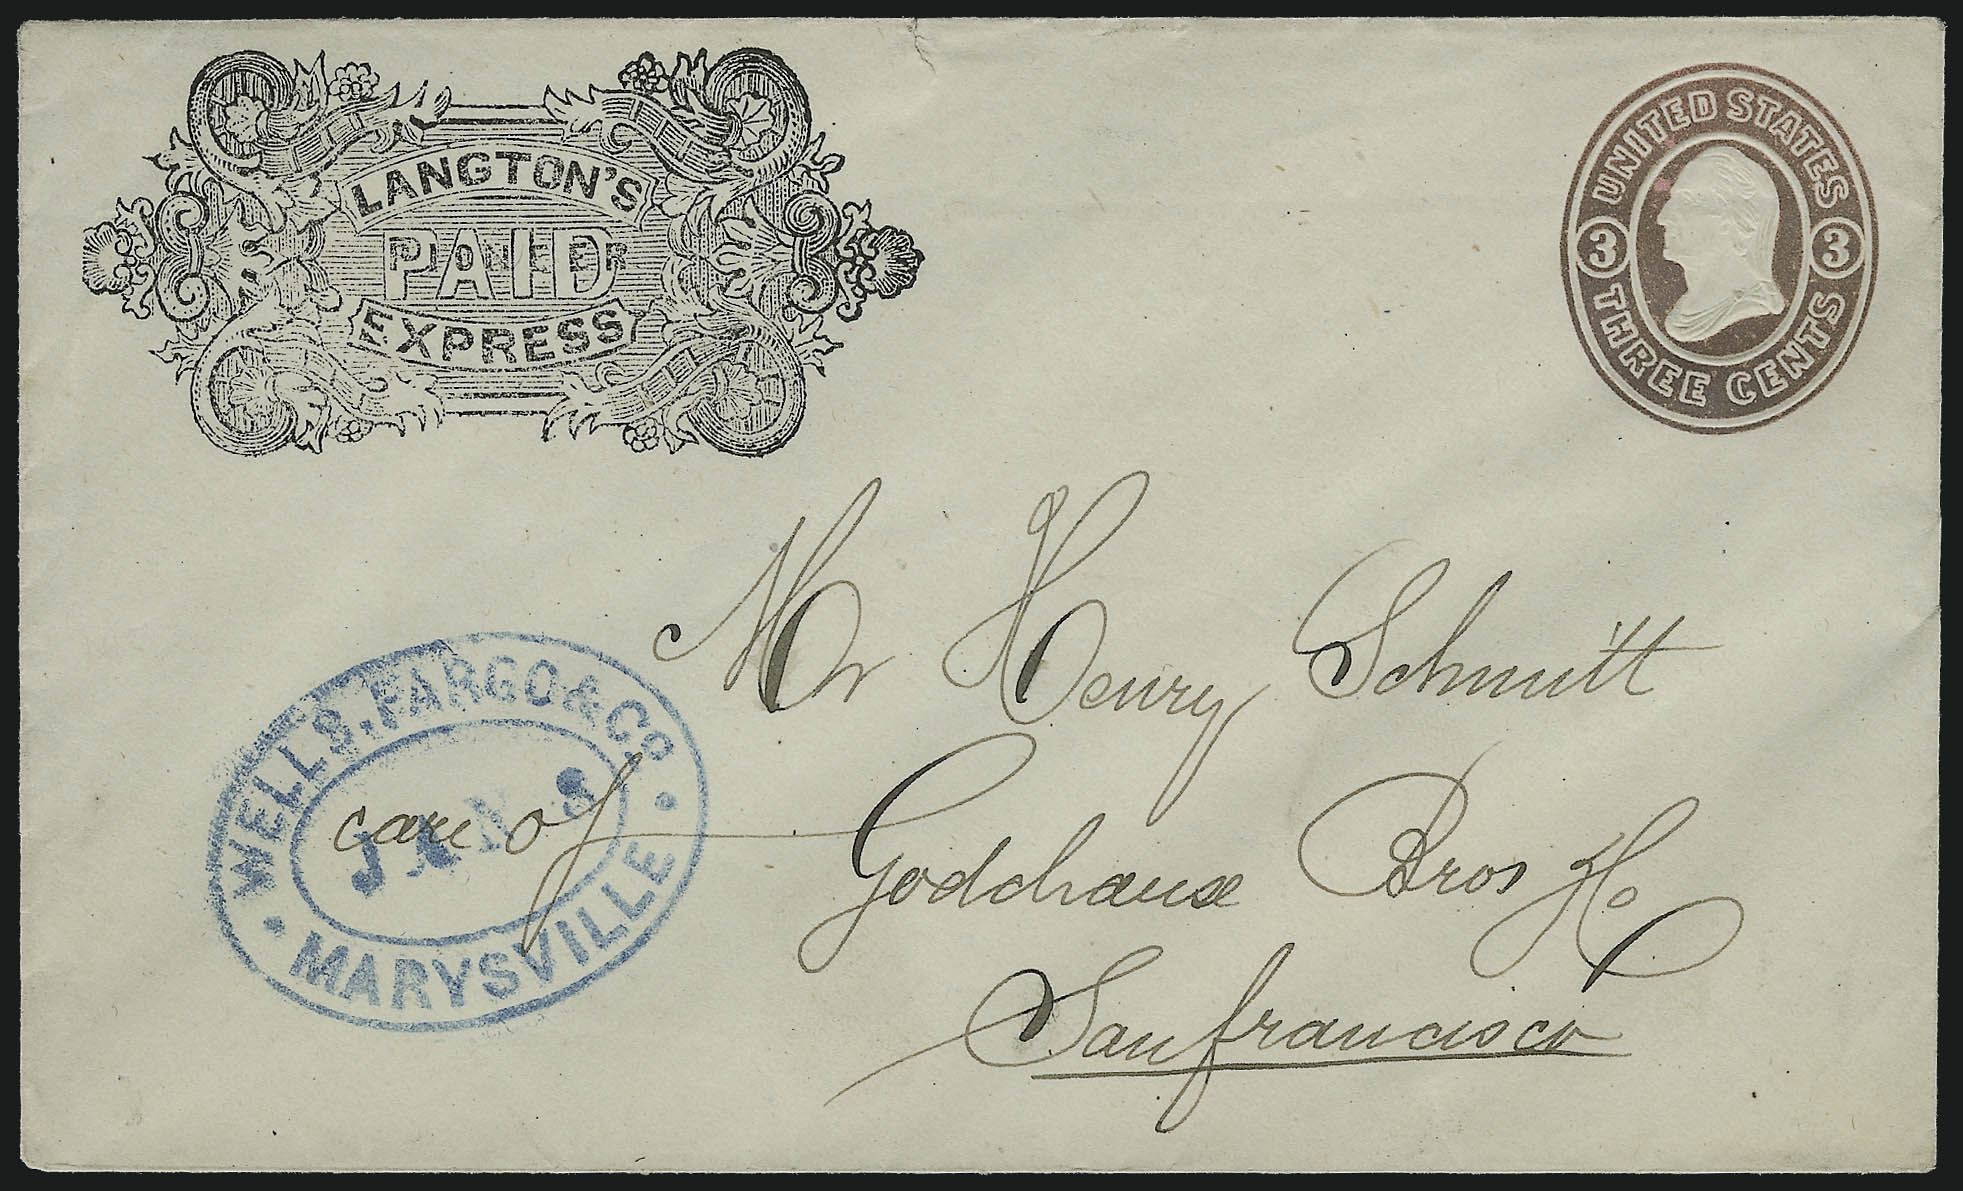 LANGTON'S
PIONEER
PAID
EXPRESS
UNITED STATES
3 3
THREE CENTS
Mr Henry Schmitt
WELLS, FARGO & Co
JAN 8
MARYSVILLE
care of Godchaux Bros
San francisco